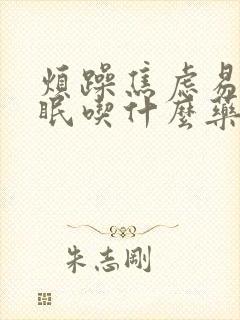 煩躁焦虑易
眠喫什麽藥
朱志剛